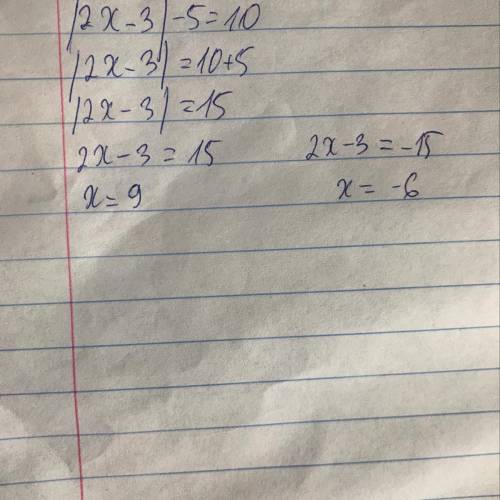 |2x-3|-5=10
|2x-3|=10+5
|2x-3|=15
2x-3=15 2x-3=-15
x=9 x=-6